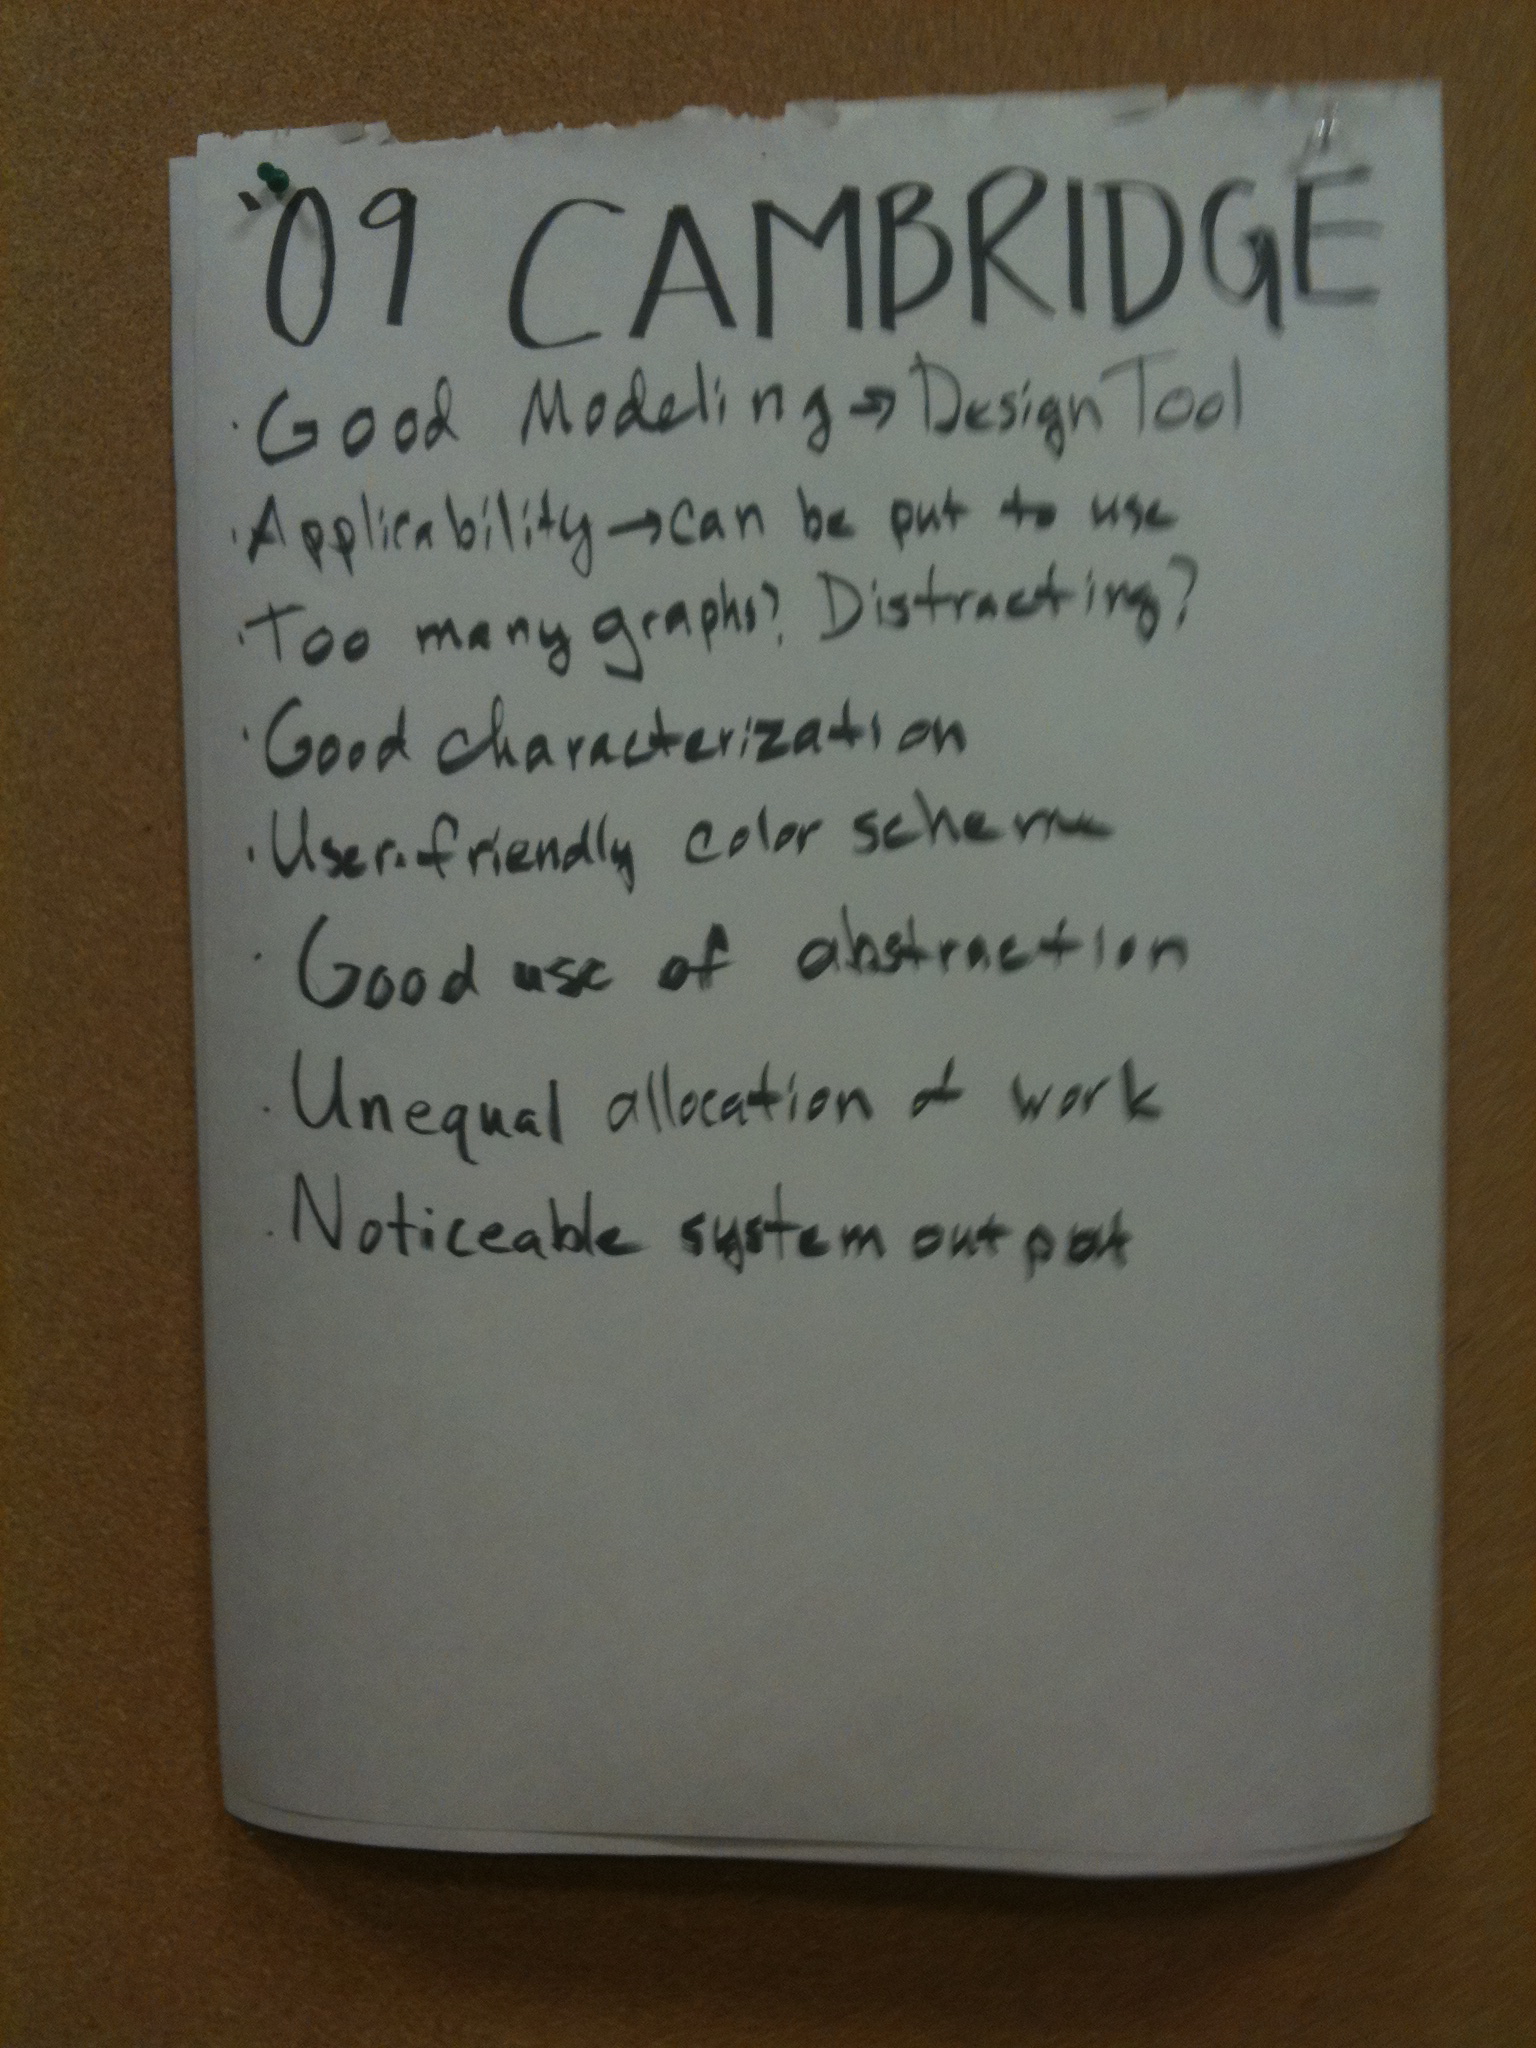 '09 CAMBRIDGE
· Good Modeling → Design Tool
· Applicability → can be put to use
· Too many graphs? Distracting?
· Good characterization
· User-friendly color scheme
· Good use of abstraction
· Unequal allocation of work
· Noticeable system output